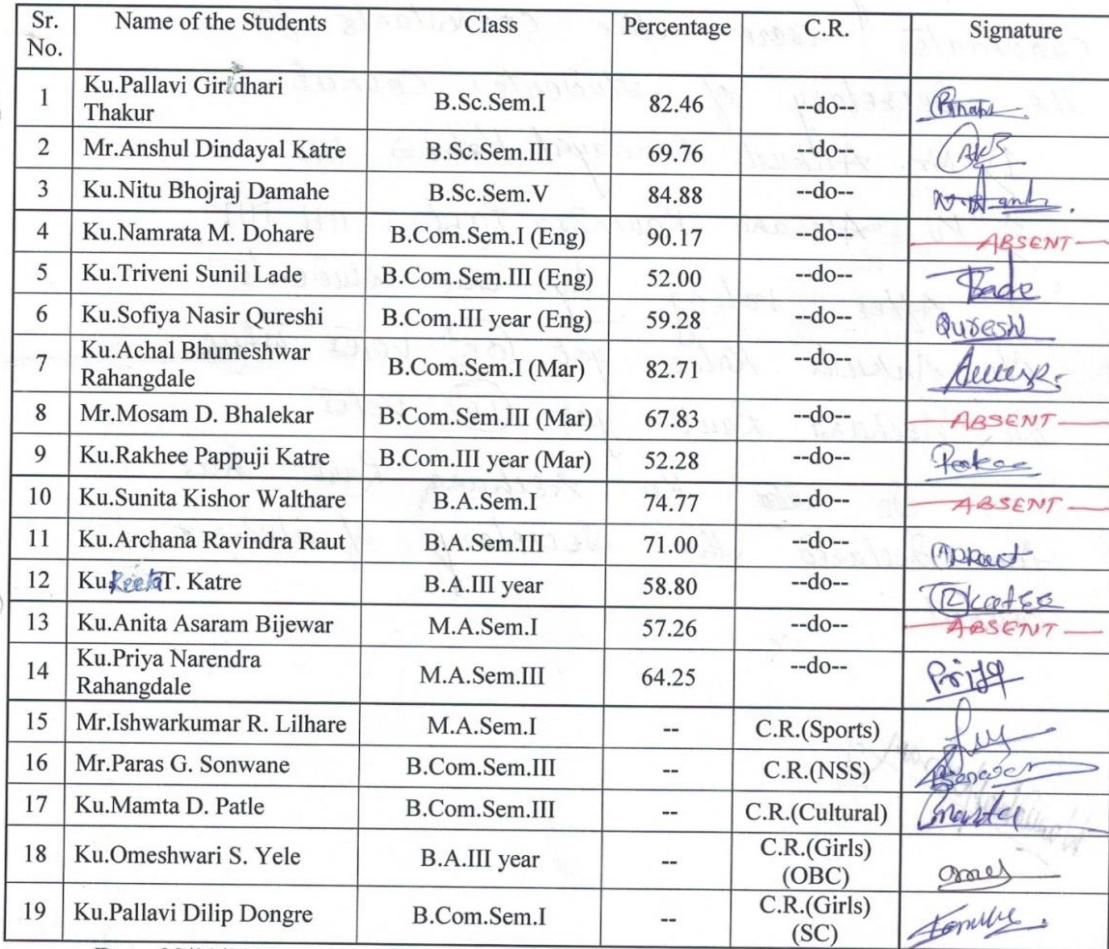 Sr. No. Name of the Students Class Percentage C.R. Signature
1 Ku.Pallavi Giridhari Thakur B.Sc.Sem.I 82.46 --do--
2 Mr.Anshul Dindayal Katre B.Sc.Sem.III 69.76 --do--
3 Ku.Nitu Bhojraj Damahe B.Sc.Sem.V 84.88 --do--
4 Ku.Namrata M. Dohare B.Com.Sem.I (Eng) 90.17 --do-- ABSENT
5 Ku.Triveni Sunil Lade B.Com.Sem.III (Eng) 52.00 --do--
6 Ku.Sofiya Nasir Qureshi B.Com.III year (Eng) 59.28 --do-- Qureshi
7 Ku.Achal Bhumeshwar Rahangdale B.Com.Sem.I (Mar) 82.71 --do--
8 Mr.Mosam D. Bhalekar B.Com.Sem.III (Mar) 67.83 --do-- ABSENT
9 Ku.Rakhee Pappuji Katre B.Com.III year (Mar) 52.28 --do--
10 Ku.Sunita Kishor Walthare B.A.Sem.I 74.77 --do-- ABSENT
11 Ku.Archana Ravindra Raut B.A.Sem.III 71.00 --do--
12 Ku.Reeta T. Katre B.A.III year 58.80 --do--
13 Ku.Anita Asaram Bijewar M.A.Sem.I 57.26 --do-- ABSENT
14 Ku.Priya Narendra Rahangdale M.A.Sem.III 64.25 --do--
15 Mr.Ishwarkumar R. Lilhare M.A.Sem.I -- C.R.(Sports)
16 Mr.Paras G. Sonwane B.Com.Sem.III -- C.R.(NSS)
17 Ku.Mamta D. Patle B.Com.Sem.III -- C.R.(Cultural)
18 Ku.Omeshwari S. Yele B.A.III year -- C.R.(Girls) (OBC)
19 Ku.Pallavi Dilip Dongre B.Com.Sem.I -- C.R.(Girls) (SC)